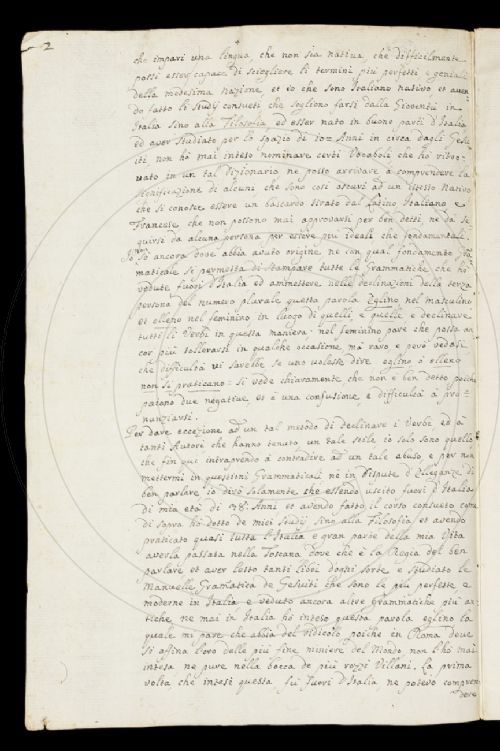 2
che impari una lingua, che non sia nativa, che difficilmente
possi esser capace di sciogliere li termini più perfetti e geniali
della medesima nazione, et io che sono Italiano nativo et aven-
do fatto li studij consueti che sogliono farsi dalla Gioventù in
Italia sino alla Filosofia ed esser nato in buone parti d'Italia
ed aver studiato per lo spazio di 10= Anni in circa dagli Gesu-
iti non hò mai inteso nominare certi Vocaboli che hò ritro-
vato in un tal Dizionario ne posso arrivare à comprendere la
significazione di alcuni che sono così oscuri ad un istesso nativo
che si conosce essere un bastardo tirato dal Latino Italiano e
Francese che non possono mai approvarsi per ben detti ne da se-
guirsi da alcuna persona per essere più ideali che fondamentali.
Io non sò ancora dove abbia avuto origine ne con qual fondamento
maticale si permetta di stampare tutte le Grammatiche che hò
vedute fuori d'Italia ed ammettere nelle declinazioni della terza
persona del numero plurale questa parola Eglino nel mascolino
et elleno nel feminino in luogo di quelli e quelle e declinare
tutti li Verbi in questa maniera: nel feminino pare che possa an-
cor più tollerarsi in qualche occasione mà raro e però vedasi
che difficultà vi sarebbe se uno volesse dire eglino ò elleno
non si praticano = si vede chiaramente che non è ben detto poiche
paiono due negative et è una confusione, e difficultà à pro-
nunziarsi.
Per dare eccezione ad un tal metodo di declinare i Verbi ed à
tanti Autori che hanno tenuto un tale stile io solo sono quello
che fin qui intraprendo à contradire ad un tale abuso e per non
mettermi in questioni Grammaticali nè in dispute d'Elleganze di
ben parlare io dirò solamente che essendo uscito fuori d'Italia
di mia età di 38. Anni et avendo fatto il corso consueto come
di sopra hò detto de miei studij sino alla Filosofia et avendo
praticato quasi tutta l'Italia e gran parte della mia Vita
averla passata nella Toscana dove che è la Regia del ben
parlare et aver letto tanti libri d'ogni sorte e studiato le
Manuelle Gramatica de Gesuiti che sono le più perfette e
moderne in Italia e veduto ancora altre Grammatiche più an-
tiche ne mai in Italia hò inteso questa parola eglino la
quale mi pare che abbia del ridicolo poiche en Roma dove
si affina l'oro delle più fine miniere del Mondo non l'hò mai
intesa ne pure nella bocca de più rozzi Villani. La prima
volta che intesi questa fu fuori d'Italia ne potevo compren-
dere